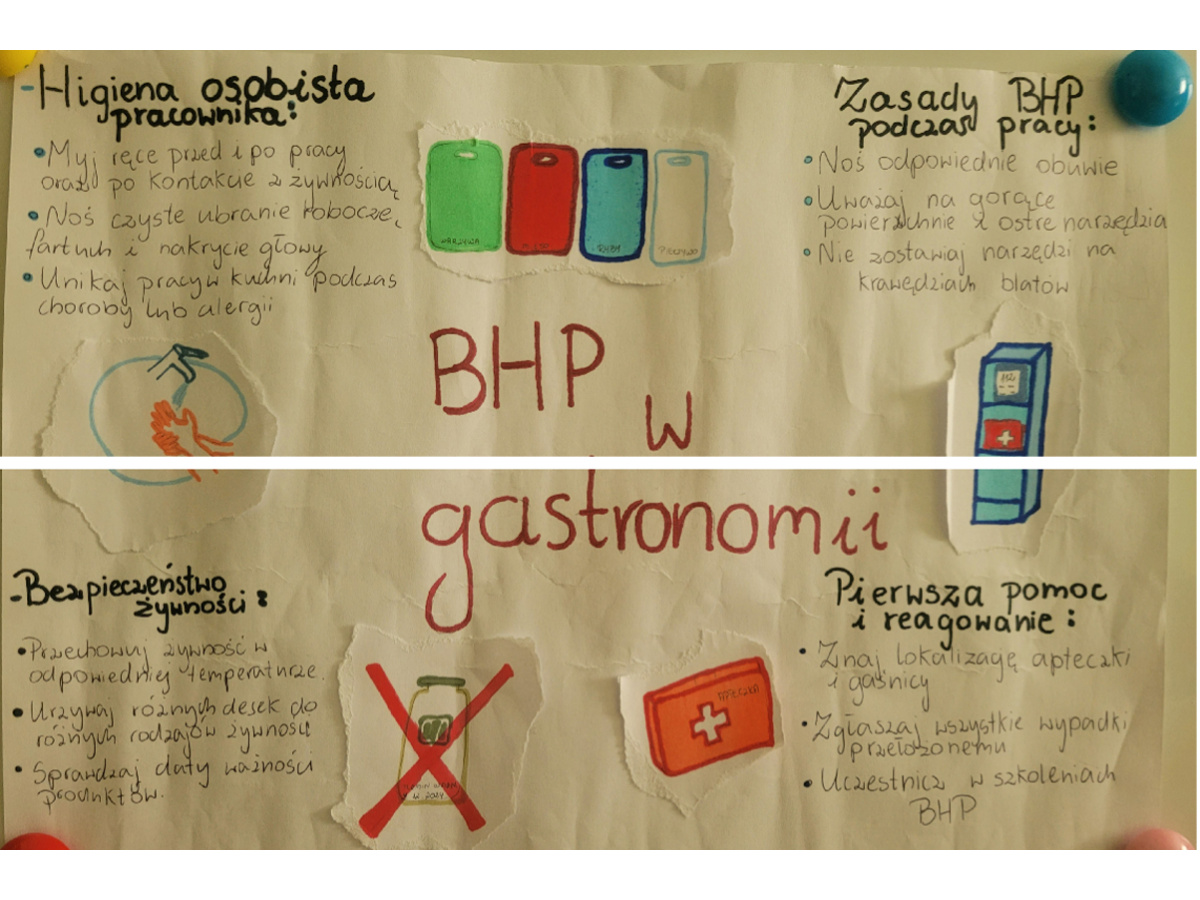 -Higiena osobista
pracownika:
• Myj ręce przed i po pracy
oraz po kontakcie z żywnością
• Noś czyste ubranie robocze,
fartuch i nakrycie głowy
• Unikaj pracy w kuchni podczas
choroby lub alergii
WARZYWA
RYBY
PIECZYWO
Zasady BHP
podczas pracy:
• Noś odpowiednie obuwie
• Uważaj na gorące
powierzchnie i ostre narzędzia
• Nie zostawiaj narzędzi na
krawędziach blatów
BHP
w
gastronomii
112
-Bezpieczeństwo
żywności:
• Przechowuj żywność w
odpowiedniej temperaturze.
• Urzywaj różnych desek do
różnych rodzajów żywności
• Sprawdzaj daty ważności
produktów.
2024
APTECZKA
Pierwsza pomoc
i reagowanie:
• Znaj lokalizację apteczki
i gaśnicy
• Zgłaszaj wszystkie wypadki
przełożonemu
• Uczestnicz w szkoleniach
BHP